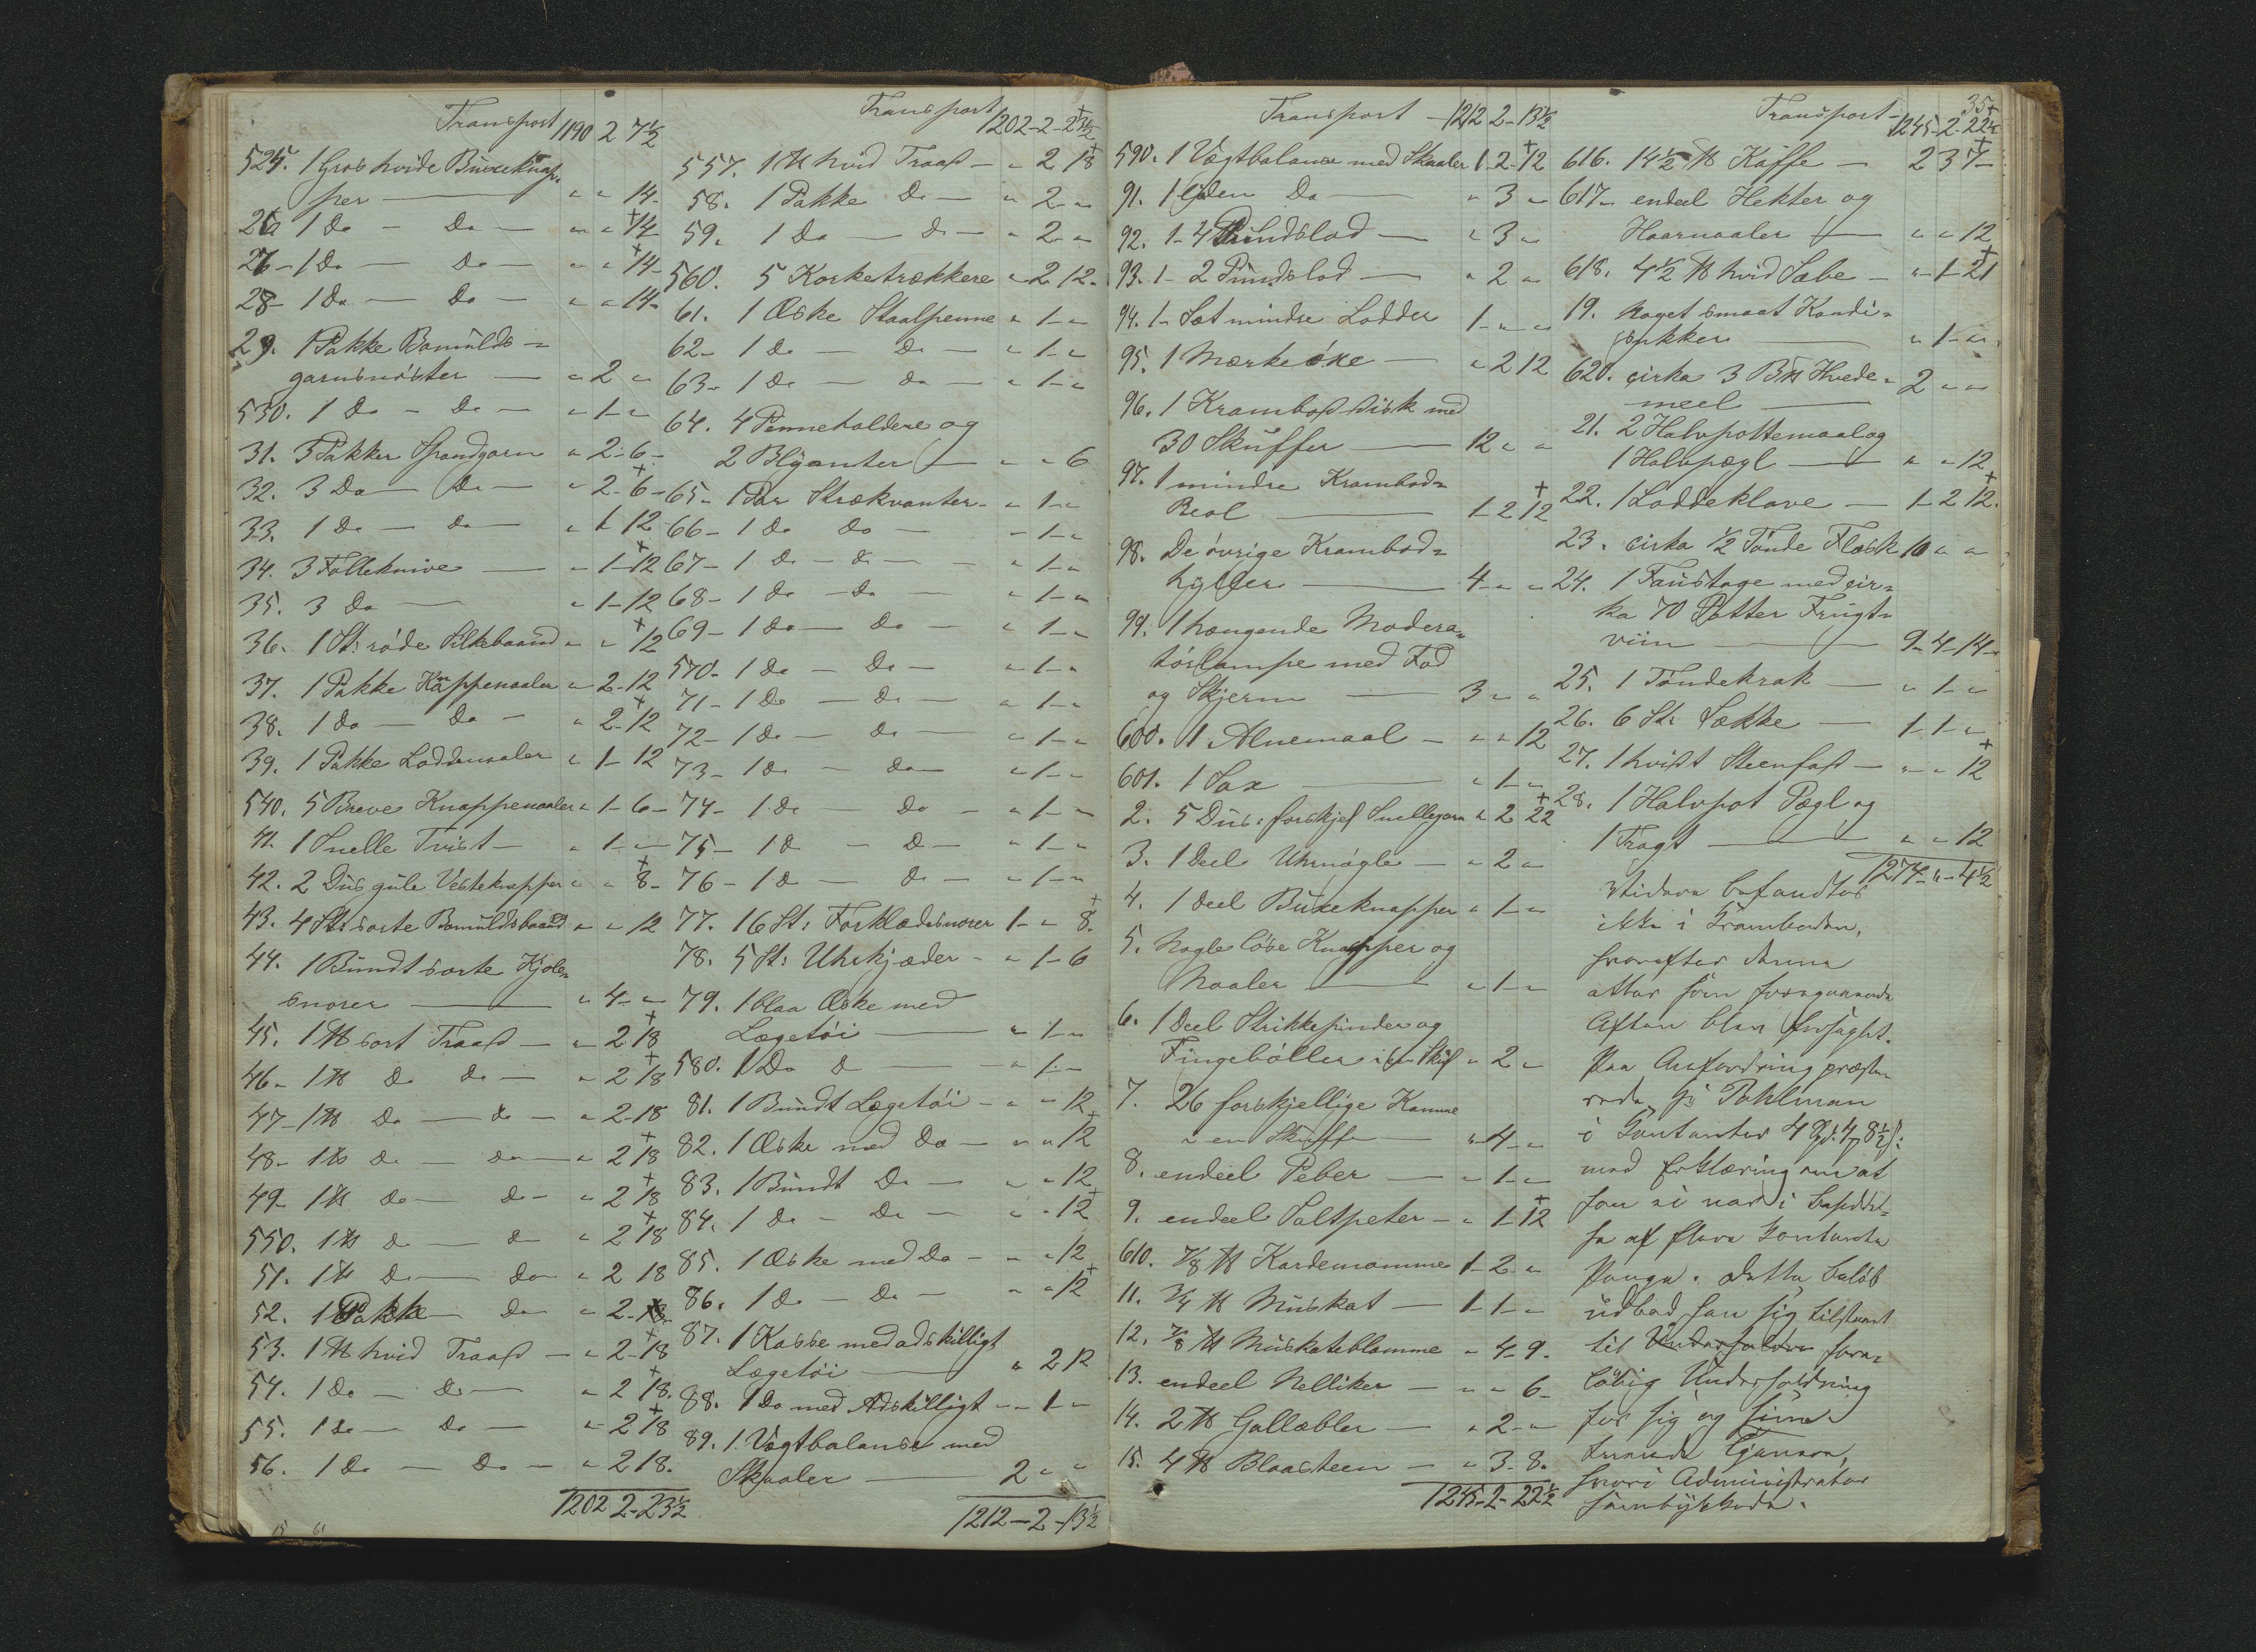 Transport 1190 2 7½
525. 1 Gros hvide Buxeknap-
per — " " 14-
26 1 Do - Do — " " 14-
27 - 1 Do — Do — " " 14-
28 - 1 Do — Do — " " 14-
29. 1 Pakke Bomulds-
garnsnöster — " 2 "
530. 1 Do - Do — " 1 - "
31. 3 Pakker Spandgarn " 2 - 6 -
32. 3 Do — Do — " 2 - 6 -
33. 1 Do — Do — " 1 12
34. 3 Følleknive — " 1 - 12
35. 3 Do — " 1 - 12
36. 1 St: röde Silkebaand " " 12
37. 1 Pakke Knappenaaler " 2 - 12
38. 1 Do — Do — " 2 - 12
39. 1 Pakke Loddenaaler " 1 - 12
540. 5 Breve Knappenaaler " 1 - 6 -
41. 1 Snelle Tvist — " 1 - "
42. 2 Dus gule Vesteknapper " " 8 -
43. 4 St: sorte Bomuldsbaand " " 12
44. 1 Bundt sorte Kjole-
snorer — " 4 - "
45. 1 ℔ sort Traad — " 2 18
46 - 1 ℔ Do Do — " 2 18
47 - 1 ℔ Do — Do — " 2 - 18
48 - 1 ℔ Do — Do — " 2 18
49 - 1 ℔ Do — Do — " 2 18
550. 1 ℔ Do — Do " 2 18
51. 1 ℔ Do — Do " 2 18
52. 1 Pakke Do " 2 - 18
53. 1 ℔ hvid Traad — " 2 - 18
54. 1 Do — Do — " 2 18.
55. 1 Do — Do — " 2 18
56. 1 Do — Do — " 2 18.
1202 2 - 23½
Transport 1202 - 2 - 23½
557. 1 ℔ hvid Traad — " 2 18
58. 1 Pakke Do — " 2 - "
59. 1 Do — Do — " 2 - "
560. 5 Korketrækkere " 2 12 -
61. 1 Æske Staalpenne " 1 - "
62 - 1 Do — Do — " 1 - "
63 - 1 Do — Do — " 1 - "
64. 4 Penneholdere og
2 Blyanter — " " 6
65 - 1 Par Strækvanter - " 1 - "
66 - 1 Do Do — " 1 - "
67 - 1 Do - Do — " 1 - "
68 - 1 Do - Do — " 1 - "
69 - 1 Do — Do — " 1 - "
570 - 1 Do — Do — " 1 - "
71 - 1 Do — Do — " 1 - "
72 - 1 Do — Do — " 1 - "
73 - 1 Do — Do — " 1 - "
74 - 1 Do — Do — " 1 - "
75 - 1 Do — Do — " 1 - "
76 - 1 Do — Do — " 1 - "
77. 16 St: Forklædesnorer 1 - " 8.
78. 5 St: Uhrkjæder - " 1 - 6
79. 1 blaa Æske med
Legetöi — " 1 - "
580. 1 Do Do — " 1 - "
81. 1 Bundt Legetöi - " " 12
82. 1 Æske med Do — " " 12
83. 1 Bundt Do — " " 12
84. 1 Do - Do — " " 12
85. 1 Æske med Do — " " 12
86. 1 Do - Do — " " 12
87. 1 Kasse med adskilligt
Legetöi — " 2 12
88. 1 Do med Adskilligt — " 1 - "
89. 1 Vægtbalanse med
Skaaler — 2 " "
1212 - 2 - 13½
Transport — 1212 2 - 13½
590. 1 Vægtbalanse med Skaaler 1 - 2 - 12
91. 1 liden Do — " 3 "
92. 1 - 4 Pundslod — " 3 "
93. 1 - 2 Pundslod — " 2 "
94. 1 - Sæt mindre Lodder 1 - " "
95. 1 Mærkeöxe — " 2 12
96. 1 Krambod disk med
30 Skuffer — 12 " "
97. 1 mindre Krambod-
Reol — 1 - 2 12
98. De övrige Krambod-
hylder — 4 - " "
99. 1 hængende Modera-
törlampe med Fod
og Skjerm — 3 " "
600. 1 Alnemaal — " " 12
601. 1 Sax — " 1 - "
2. 5 Dus: forskjel Snellegarn " 2 22
3. 1 Deel Uhrnögle — " 2 "
4. 1 deel Buxeknapper " 1 - "
5. Nogle löse Knapper og
Naaler — " 1 - "
6. 1 Deel Strikkepinder og
Fingeböller i en Skuf " 2 "
7. 26 forskjellige Kamme
i en Skuffe — " 4 - "
8. endeel Peber — " 1 - "
9. endeel Saltpeter — " 1 - 12
610. ⅞ ℔ Kardemomme 1 - 2 - "
11. ¾ ℔ Muskat — 1 - 1 - "
12. ⅞ ℔ Muskateblomme " 4 - 9 -
13. endeel Nelliker — " " 6 -
14. 2 ℔ Galläbler — " 2 - "
15. 4 ℔ Blaasteen — " 3 - 8.
1245 - 2 - 22½
35
Transport - 1245 - 2 - 22½
616. 14½ ℔ Kaffe — 2 3 7 -
617 - endeel Hekter og
Haarnaaler — " " 12
618. 4½ ℔ hvid Sæbe — " 1 - 21
19. Noget smaat Kandi-
sukker — " 1 - "
620. cirka 3 B℔ Hvede-
meel — 2 " "
21. 2 Halvpottemaal og
1 Halvpægl — " " 12
22. 1 Loddeklave — 1 - 2 12.
23. cirka ½ Tönde Flesk 10 " "
24. 1 Faustage med cir-
ka 70 Potter Frugt-
viin — 9 - 4 - 14 -
25. 1 Töndekrak — " 1 - "
26. 6 St: Sække — 1 - 1 - "
27. 1 hvidt Steenfad — " " 12
28. 1 Halvpot Pægl og
1 Tragt — " " 12
1274 - " - 4½
Videre befandtes
ikke i Kramboden,
hvorefter denne
atter som foregaaende
Aften blev forseglet.
Paa Anfordring præste-
rede Hr Pohlman
i Contanter 4 Spd: 4 ₰ 8½ ß:
med Erklæring om at
han ei var i Besiddel-
se af flere Contante
Penge. Dette Belöb
udbad han sig tilstaaet
til Underholdn fore-
löbig Underholdning
for sig og sine
Tjenere,
hvori Administrator
samtykkede.